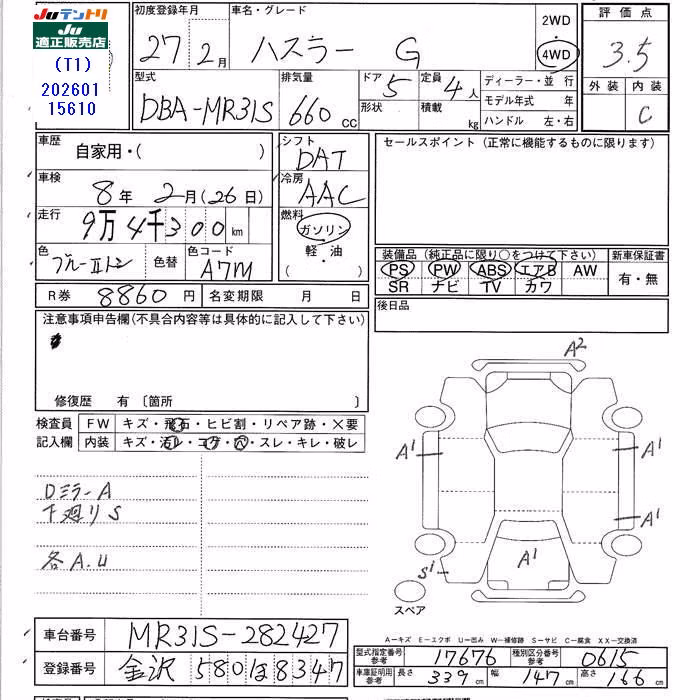 Juテントリ
Ju
適正販売店
(T1)
202601
15610
初度登録年月 車名・グレード 2WD 評価点
27 2月 ハスラー G ・ 4WD 3.5
型式 排気量 ドア 5 定員 4人 ディーラー・並行 外装 内装
DBA-MR31S 660cc 形状 積載 kg モデル年式 年 C
ハンドル 左・右
車歴 自家用・( ) シフト DAT セールスポイント (正常に機能するものに限ります)
車検 8年 2月(26日) 冷房 AAC
走行 9万4千300km 燃料 ガソリン
軽・油
( )
色 ブルーII トン 色替 色コード A7M 装備品 (純正品に限り○をつけて下さい) 新車保証書
PS PW ABS エアB AW 有・無
SR ナビ TV カワ
R券 8860円 名変期限 月 日 後日品
注意事項申告欄(不具合内容等は具体的に記入して下さい)
修復歴 有 〔箇所 〕
A2
検査員 FW キズ・飛石・ヒビ割・リペア跡・×要
記入欄 内装 キズ・汚レ・コゲ・穴・スレ・キレ・破レ
A1 A1
Dミラー A
下廻り S
A1
各A.U
A1
S1
スペア
A－キズ E－エクボ U－凹み W－補修跡 S－サビ C－腐食 XX－交換済
車台番号 MR31S-282427
型式指定番号 参考 17676 種別区分番号 参考 0615
登録番号 金沢 580 ほ 8347
車庫証明用 参考 長さ 339cm 幅 147cm 高さ 166cm